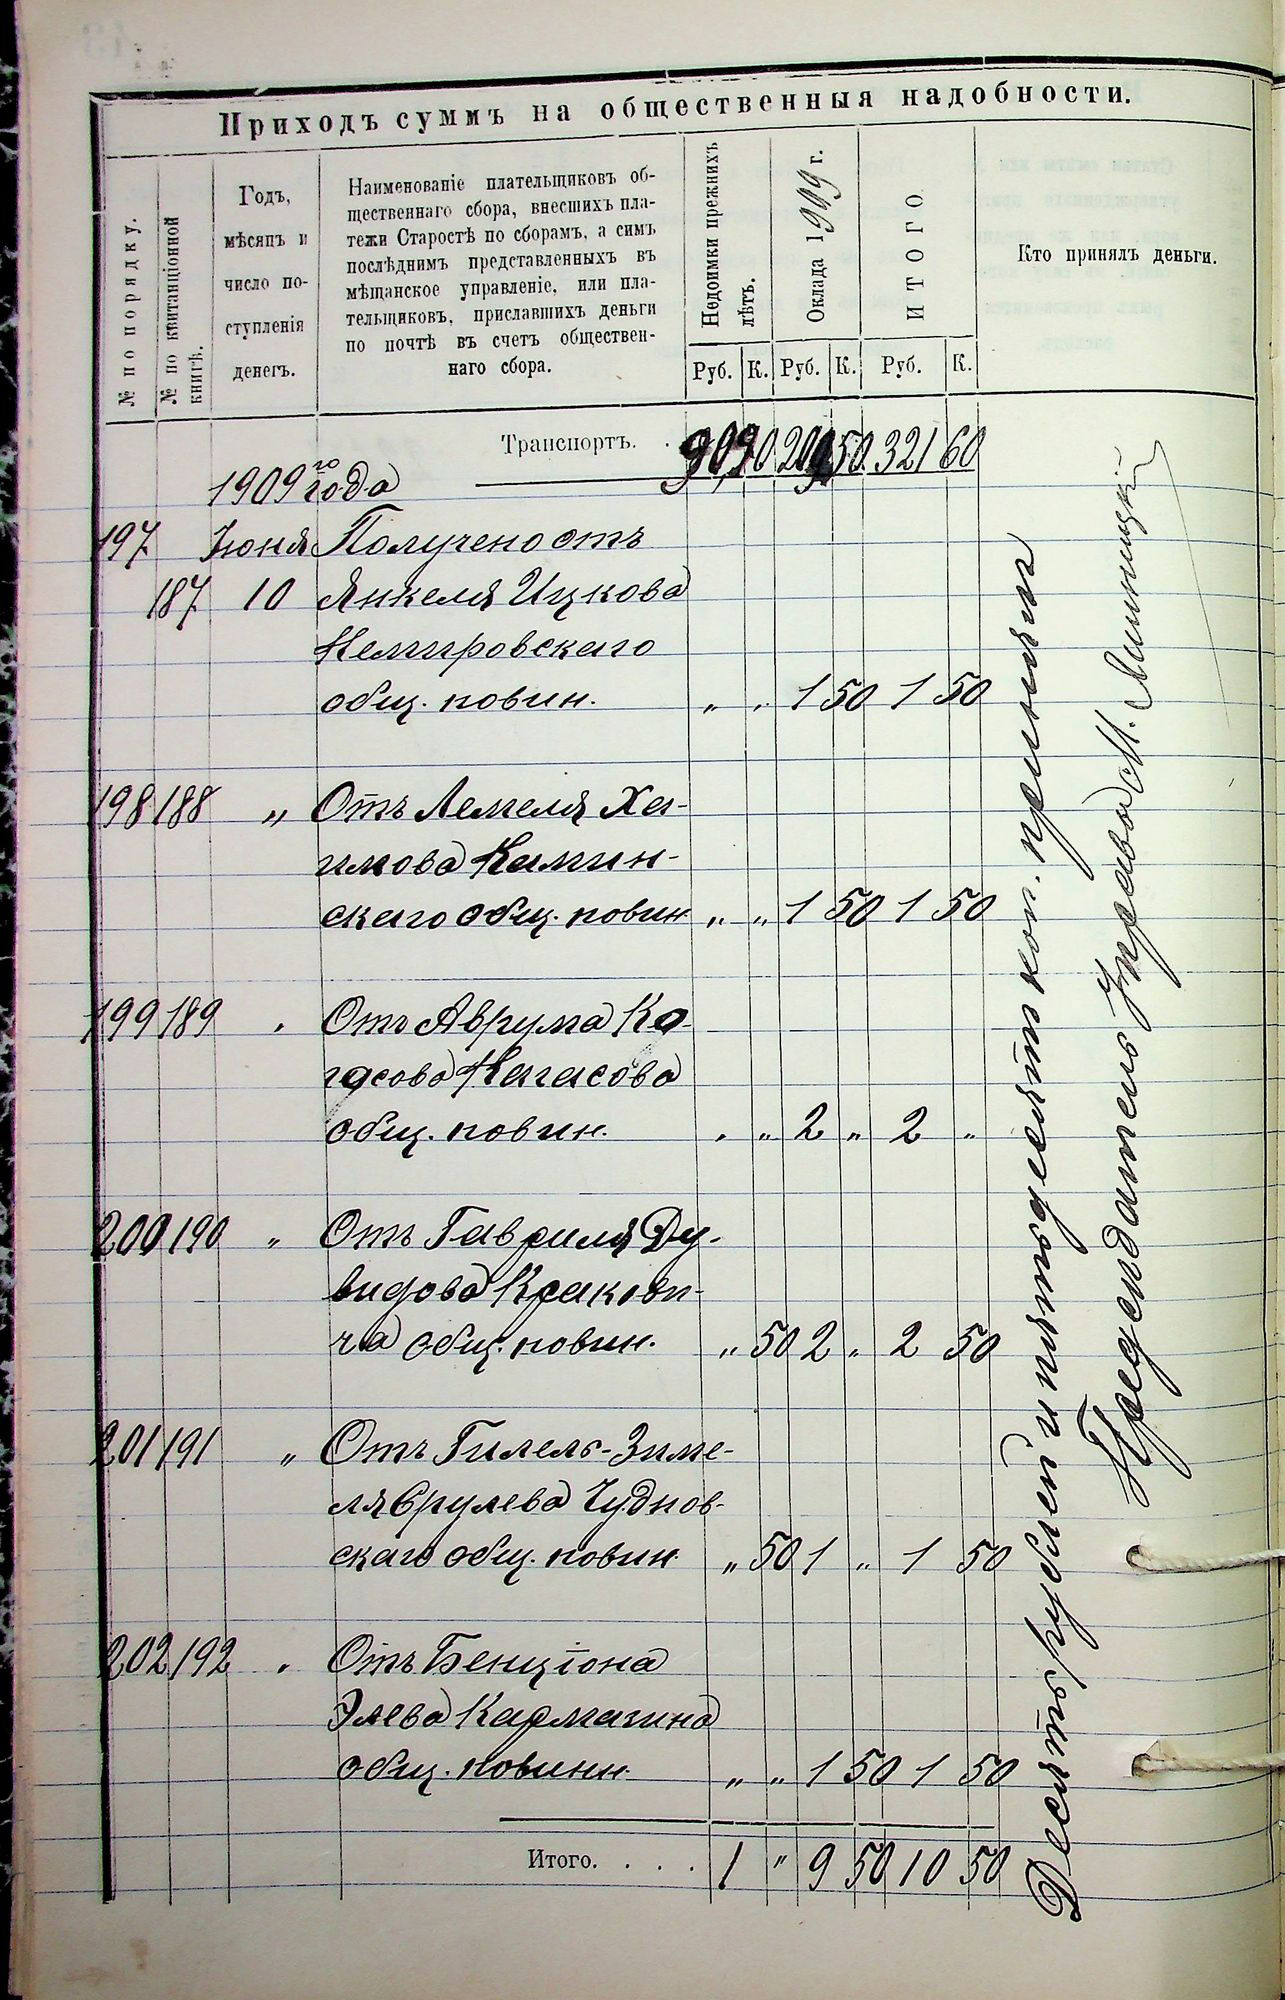 Приходъ суммъ на общественныя надобности.
№ по порядку.
№ по квитанціонной
книгѣ.
Годъ,
мѣсяцъ и
число по-
ступленія
денегъ.
Наименованіе плательщиковъ об-
щественнаго сбора, внесшихъ пла-
тежи Старостѣ по сборамъ, а симъ
послѣднимъ представленныхъ въ
мѣщанское управленіе, или пла-
тельщиковъ, приславшихъ деньги
по почтѣ въ счетъ обществен-
наго сбора.
Недоимки прежнихъ
лѣтъ.
Оклада 1909 г.
ИТОГО
Кто принялъ деньги.
Руб. К. Руб. К. Руб. К.
Транспортъ. . 321 60
1909го года
197 Июня Получено отъ
187 10 Янкеля Ицкова
Немировскаго
общ. повин. „ . 1 50 1 50
198 188 „ Отъ Лемеля Ха-
имова Камин-
скаго общ. повин „ „ 1 50 1 50
199 189 „ Отъ Аврума Ка-
гасова Кагасова
общ. повин. „ „ 2 „ 2 „
200 190 „ Отъ Гавриля Ду-
видова Кракови-
ча общ. повин. „ 50 2 „ 2 50
201 191 „ Отъ Гилель-Зиме-
ля Срулева Чуднов-
скаго общ. повин „ 50 1 „ 1 50
202 192 „ Отъ Бенціона
Элева Кармазина
общ. повинн „ „ 1 50 1 50
Итого. . . . 1 „ 9 50 10 50
Десять рублей и пятьдесят коп. принялъ
Председатель Управы М.